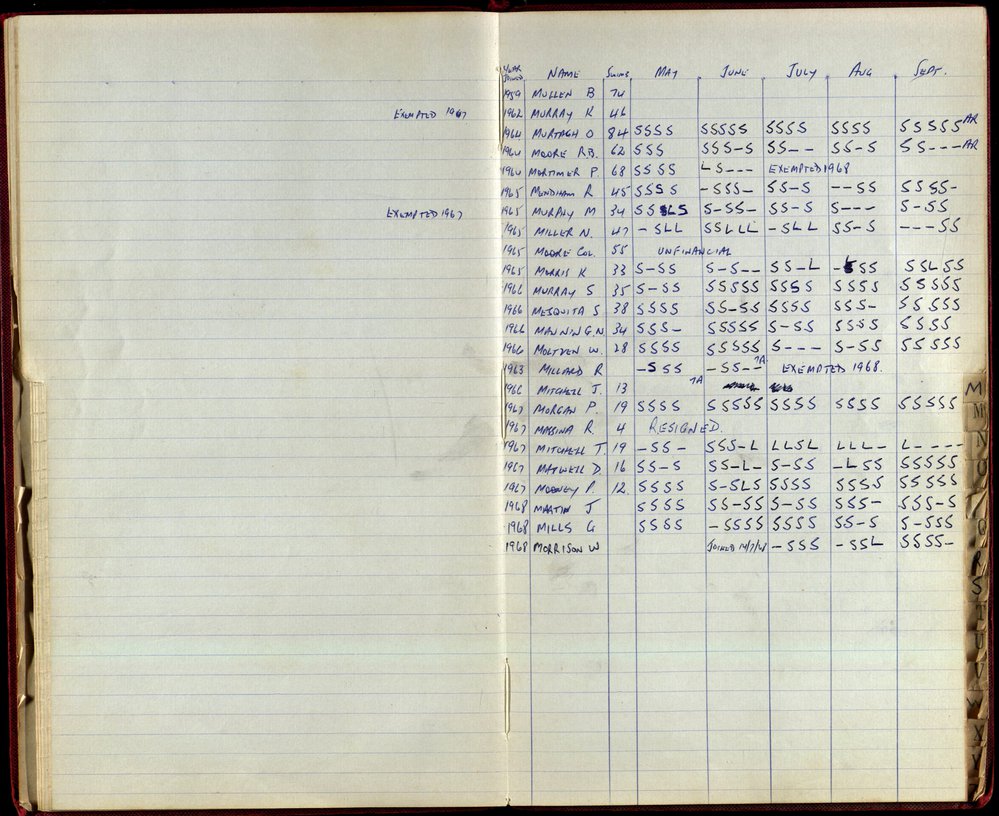 YEAR JOINED NAME SWIMS MAY JUNE JULY AUG SEPT.
1959 MULLEN B 74
EXEMPTED 1967 1962 MURRAY K 46
1964 MURTAGH O 84 SSSS SSSSS SSSS SSSS SSSSS AR
1960 MOORE R.B. 62 SSS SSS-S SS-- SS-S SS--- AR
1960 MORTIMER P. 68 SSSS LS--- EXEMPTED 1968
1965 MENDHAM R 45 SSSS -SSS- SS-S --SS SSSS-
EXEMPTED 1967 1965 MURPHY M 34 SSLS S-SS- SS-S S--- S-SS
1965 MILLER N. 47 -SLL SSLLL -SLL SS-S ---SS
1965 MOORE COL. 55 UNFINANCIAL
1965 MORRIS K 33 S-SS S-S-- SS-L -SSS SSLSS
1966 MURRAY S 35 S-SS SSSSS SSSS SSSS SSSSS
1966 MESQUITA S 38 SSSS SS-SS SSSS SSS- SSSSS
1966 MANNING N 34 SSS- SSSSS S-SS SSSS SSSS
1966 MOLTZEN W. 28 SSSS SSSSS S--- S-SS SSSSS
1963 MILLARD R -SSS -SS-- TA EXEMPTED 1968.
1966 MITCHELL J. 13 TA
1967 MORGAN P. 19 SSSS SSSSS SSSS SSSS SSSSS
1967 MASSINA R. 4 RESIGNED.
1967 MITCHELL T. 19 -SS- SSS-L LLSL LLL- L----
1967 MAXWELL D. 16 SS-S SS-L- S-SS -LSS SSSSS
1967 MOONEY P. 12. SSSS S-SLS SSSS SSSS SSSSS
1968 MARTIN J SSSS SS-SS S-SS SSS- SSS-S
1968 MILLS G SSSS -SSSS SSSS SS-S S-SSS
1968 MORRISON W JOINED 14/7/68 -SSS -SSL SSSS-
M
M
N
O
Q
R
S
T
U
V
W
X
Y